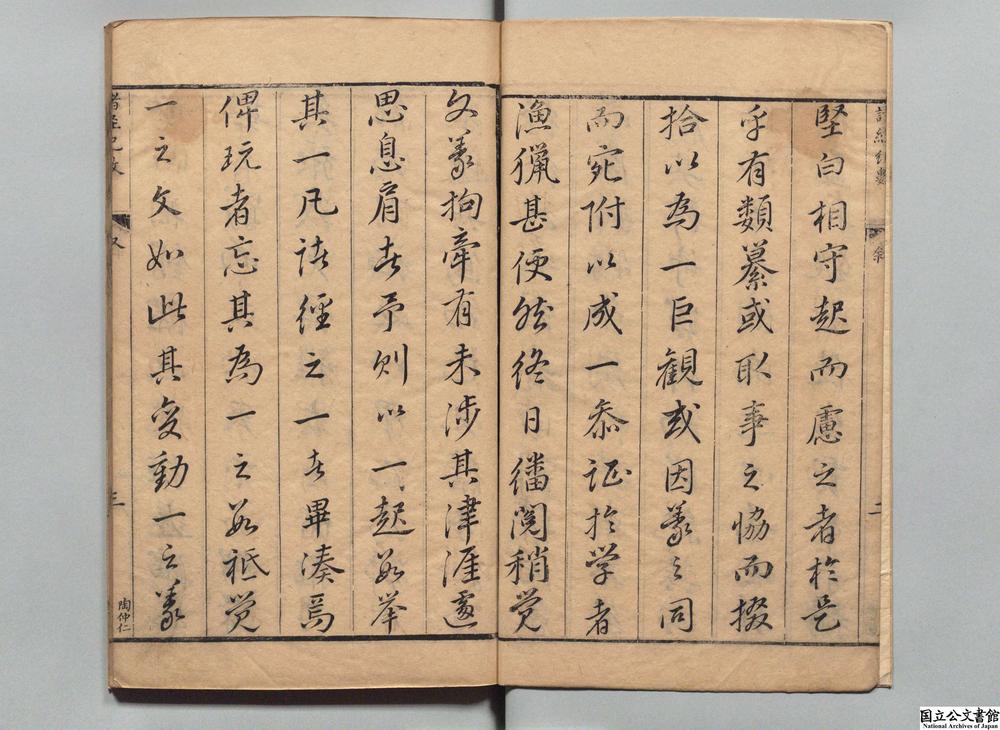 堅白相守起而慮之者於是
乎有類纂或取事之協而掇
拾以為一巨觀或因義之同
而宛附以成一叅証於学者
漁猟甚便然終日繙閲稍覚
文義拘牽有未涉其津涯遽
思息肩者予则以一起数举
其一凡諸經之一者畢湊焉
俾玩者忘其為一之数祗覚
一之文如此其变動一之義
二
三
陶仲仁
国立公文書館
National Archives of Japan